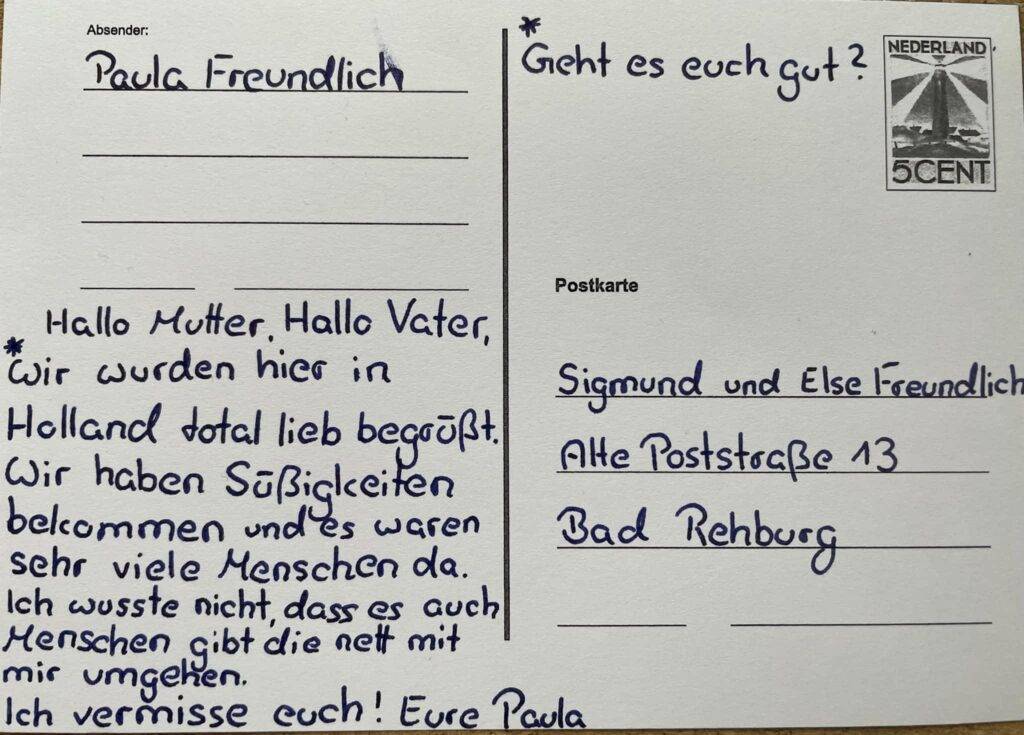 Absender:
Paula Freundlich
Hallo Mutter, Hallo Vater,
* Wir wurden hier in
Holland total lieb begrüßt.
Wir haben Süßigkeiten
bekommen und es waren
sehr viele Menschen da.
Ich wusste nicht, dass es auch
Menschen gibt die nett mit
mir umgehen.
Ich vermisse euch! Eure Paula
* Geht es euch gut?
NEDERLAND
5 CENT
Postkarte
Sigmund und Else Freundlich
Alte Poststraße 13
Bad Rehburg